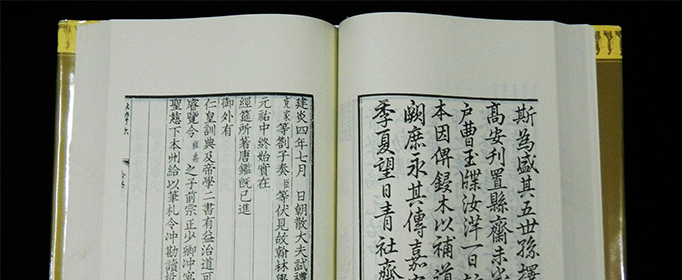 斯為盛其五世孫擇
高安利置縣齋未
户曹玉牒汝洋一日
本因俾鋟木以補道
闕庶永其傳嘉
季夏望日青社齋
建炎四年七月 日朝散大夫試
等劄子奏臣等伏見故翰林
元祐中終始實在
經筵所著唐鑑既已進
御外有
仁皇訓典及帝學二書有益治道可
睿覽令 之子前宗正少卿沖
聖慈下本州給以筆札令沖勘讀